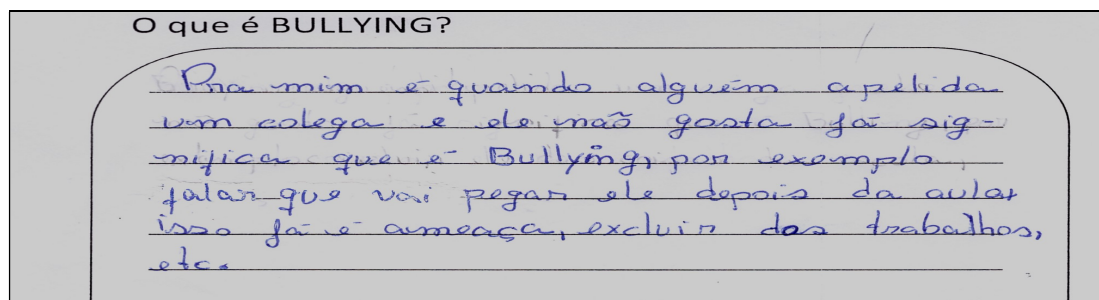 O que é BULLYING?
Pra mim é quando alguém apelida
um colega e ele não gosta já sig-
nifica que é Bullying, por exemplo
falar que vai pegar ele depois da aula,
isso já é ameaça, excluir dos trabalhos,
etc.